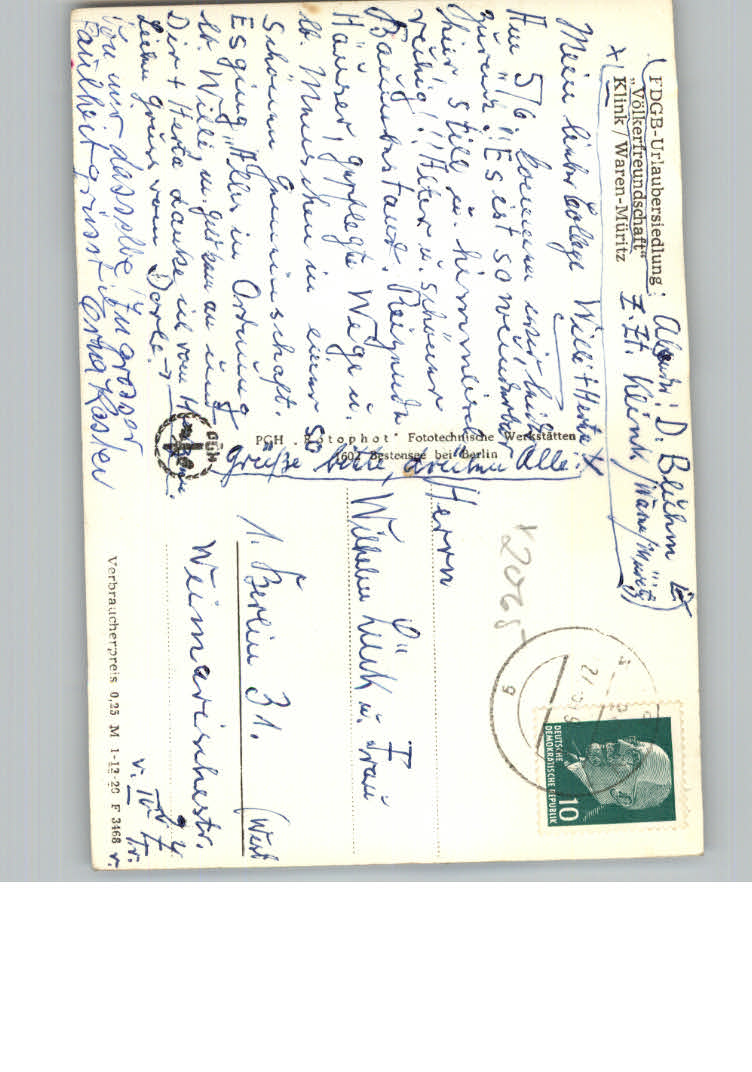 FDGB-Urlaubersiedlung
„Völkerfreundschaft“
Klink/Waren-Müritz
D. Blühm
z. Zt. Klink/Waren/Müritz
Mein lieber Willi + Herta
Am 5/6. kommen wir
zurück! Es ist so wunderbar
hier still u. himmlisch
ruhig! Alter u. schöner
Baumbestand. Reizende
Häuser, gepflegte Wege u.
lb. Menschen in einer so
schönen Gemeinschaft.
Es ging Alles in Ordnung
lb. Willi, u.
Dir + Herta danke ich von
Lieben Gruss von Dorle
Von mir dasselbe! In grosser
Faulheit grüsst Erna Kosler
Grüße bitte Alle.
PGH „Rotophot“ Fototechnische Werkstätten
1602 Bestensee bei Berlin
PGH
Herrn
Wilhelm u. Frau
1. Berlin 31.
(West
Weimarischestr.
v. IV Tr.
Verbraucherpreis 0,25 M 1-12-26 F 3468
2065
10
DEUTSCHE
DEMOKRATISCHE REPUBLIK